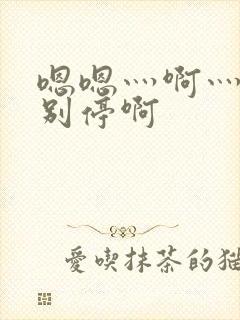 嗯嗯灬啊灬
别停啊
愛喫抹茶的猫